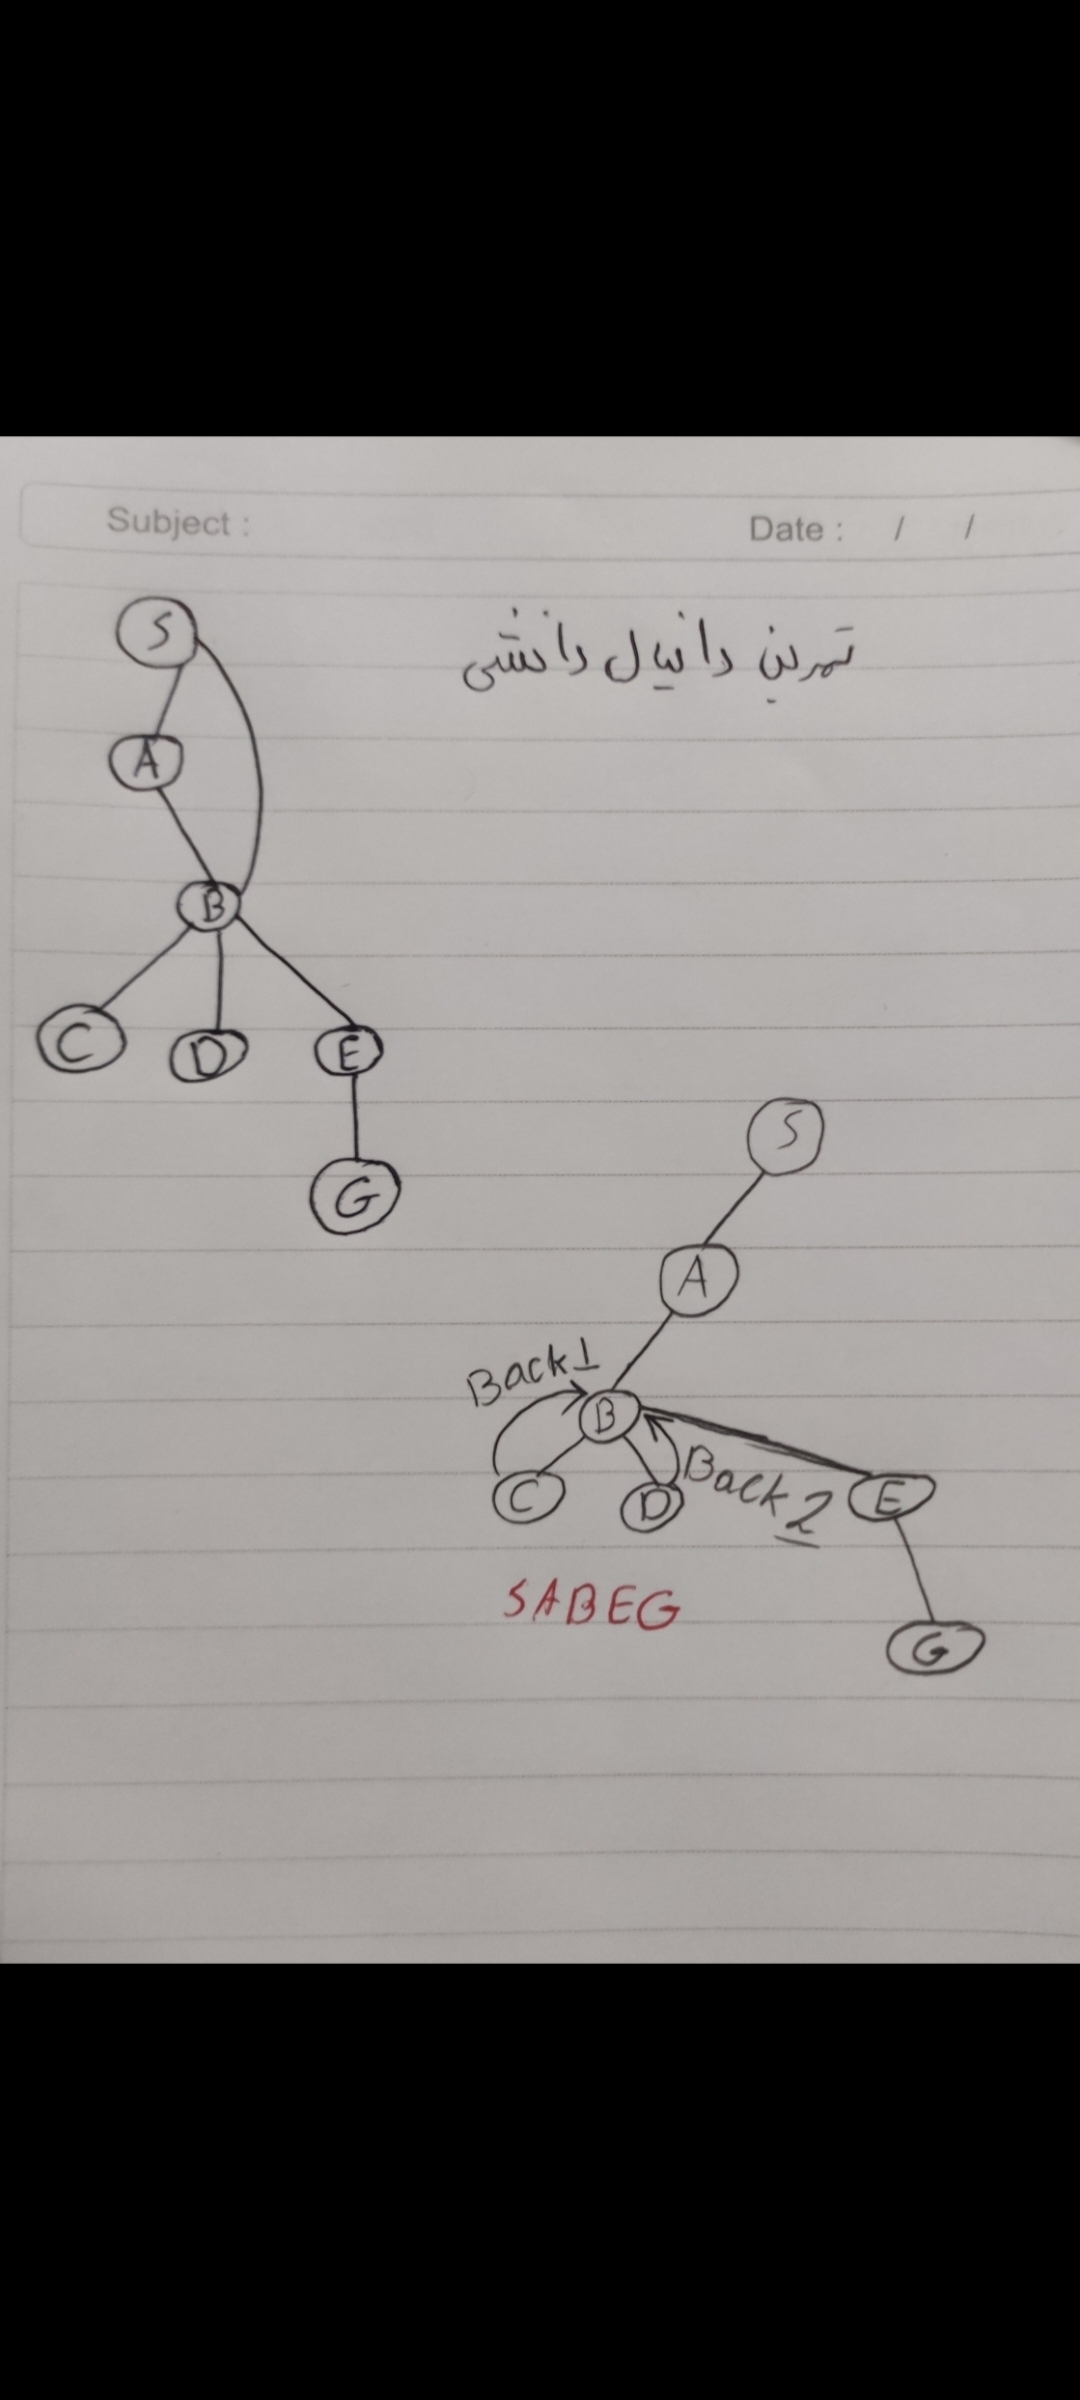 Subject :
Date : / /
تمرین دانیال دانشی
S
A
B
C D E
G
S
A
Back 1
B
C D Back 2 E
SABEG
G